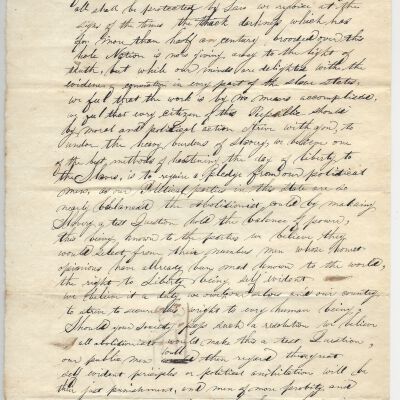 all shall be protected by Law we rejoice at the
signs of the times the thick darkness which has
for more than half an century brooded over this
hole Nation is now giving away to the light of
truth, but while our minds are delighted with the
evidence of in every part of the slave states
we feel that the work is by no means accomplished,
feel that every citizen of this Republic should
by moral and political action strive with you, to
undow the heavy burdens of slavery, we believe one
of the best methods of hastening the day of liberty to
the Slaves, is to require a pledge from our political
men, as our Political parties in this state are so
nearly balanced the abolitionist could by making
Slavery a test Question hold the balance of power,
this being known to the parties we believe they
would select from their number men whose honest
opinions have already been made known to the world,
the right to Liberty being self evident
we believe it a duty we owe our selves and our country
to strive to secure this right to every human being,
Should your Society pass such a resolution we believe
all abolitionists would make this a test Question,
our public men will then regard this great
self evident principles or political anihilation will be
their just punishment, and men of more probity, and